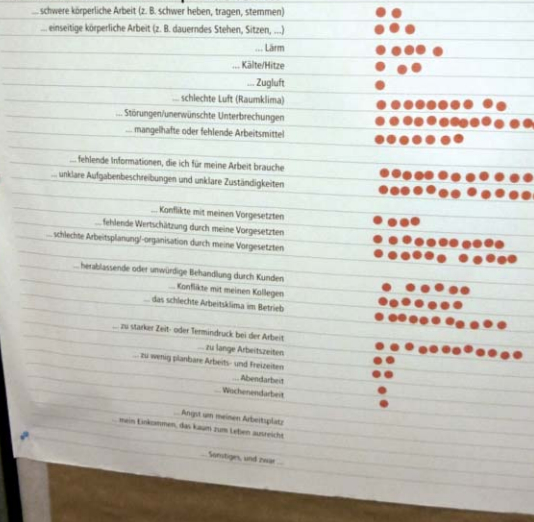 ... schwere körperliche Arbeit (z. B. schwer heben, tragen, stemmen)
... einseitige körperliche Arbeit (z. B. dauerndes Stehen, Sitzen, ...)
... Lärm
... Kälte/Hitze
... Zugluft
... schlechte Luft (Raumklima)
... Störungen/unerwünschte Unterbrechungen
... mangelhafte oder fehlende Arbeitsmittel
... fehlende Informationen, die ich für meine Arbeit brauche
... unklare Aufgabenbeschreibungen und unklare Zuständigkeiten
... Konflikte mit meinen Vorgesetzten
... fehlende Wertschätzung durch meine Vorgesetzten
... schlechte Arbeitsplanung/-organisation durch meine Vorgesetzten
... herablassende oder unwürdige Behandlung durch Kunden
... Konflikte mit meinen Kollegen
... das schlechte Arbeitsklima im Betrieb
... zu starker Zeit- oder Termindruck bei der Arbeit
... zu lange Arbeitszeiten
... zu wenig planbare Arbeits- und Freizeiten
... Abendarbeit
... Wochenendarbeit
... Angst um meinen Arbeitsplatz
... mein Einkommen, das kaum zum Leben ausreicht
... Sonstiges, und zwar ...